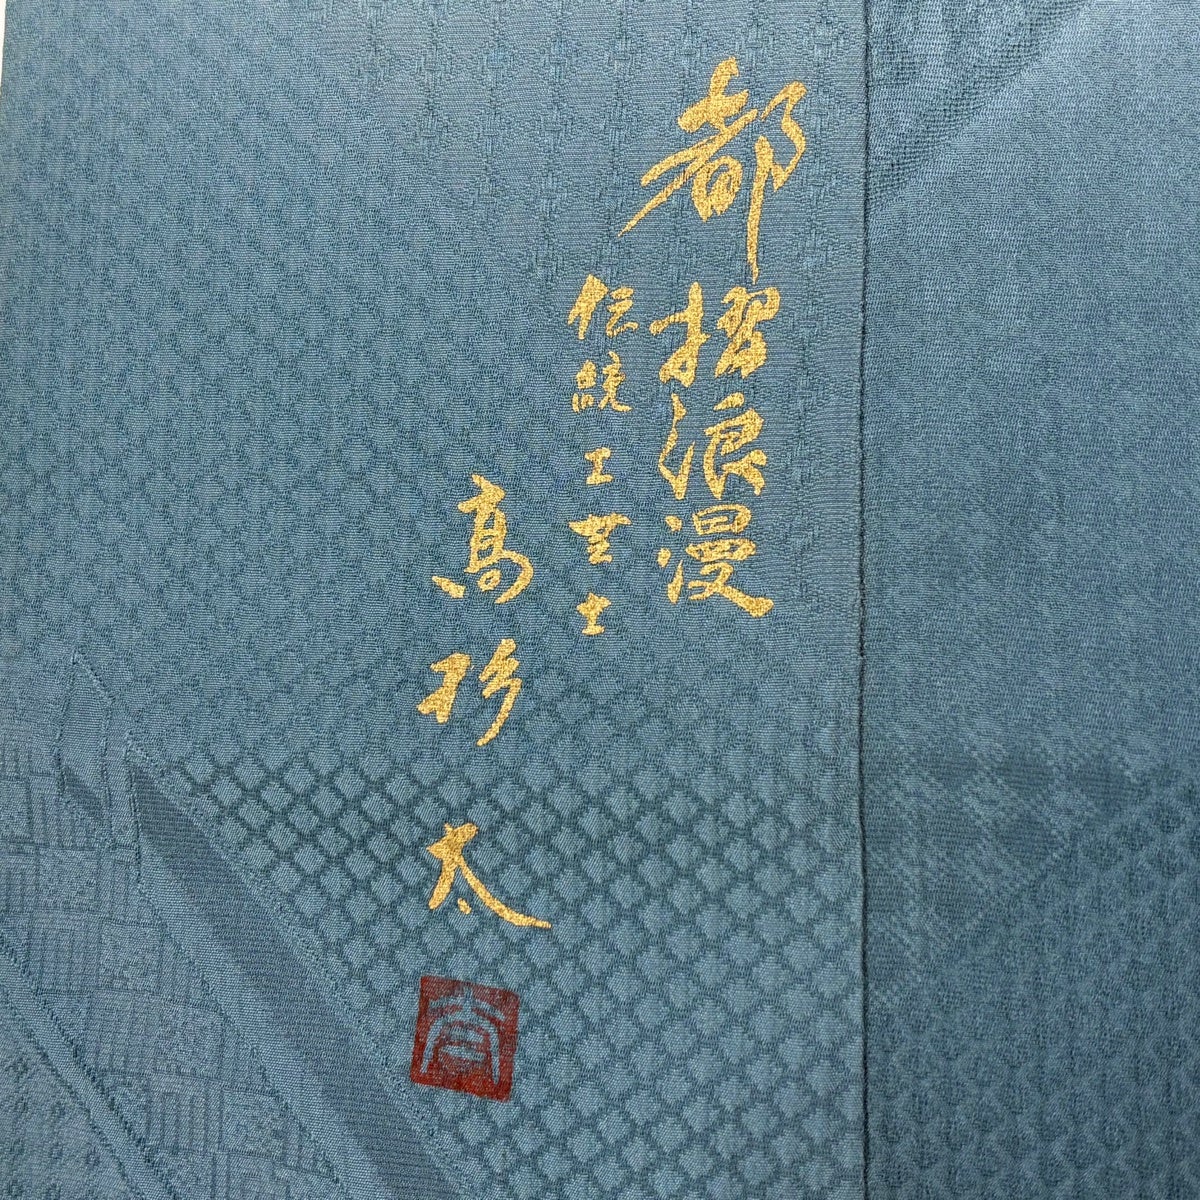 都摺浪漫
伝統工芸士
高杉太